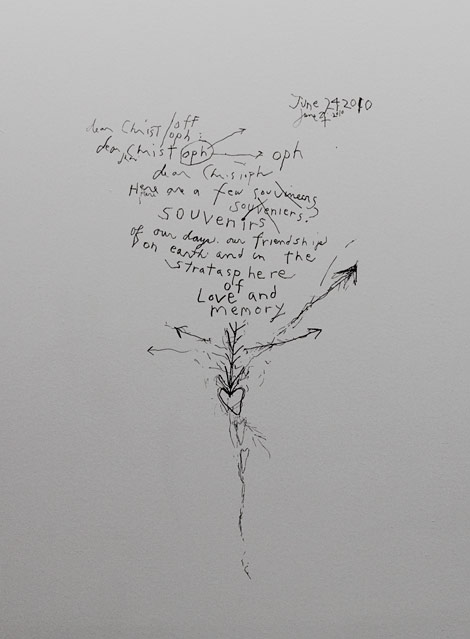 June 24 2010
June 24 2010
dear Christ/off
oph:
dear Christ oph → oph
dear Christoph
Here are a few souvineers
souveniers?
souvenirs
of our days. our friendship
on earth and in the
stratasphere
of
Love and
memory